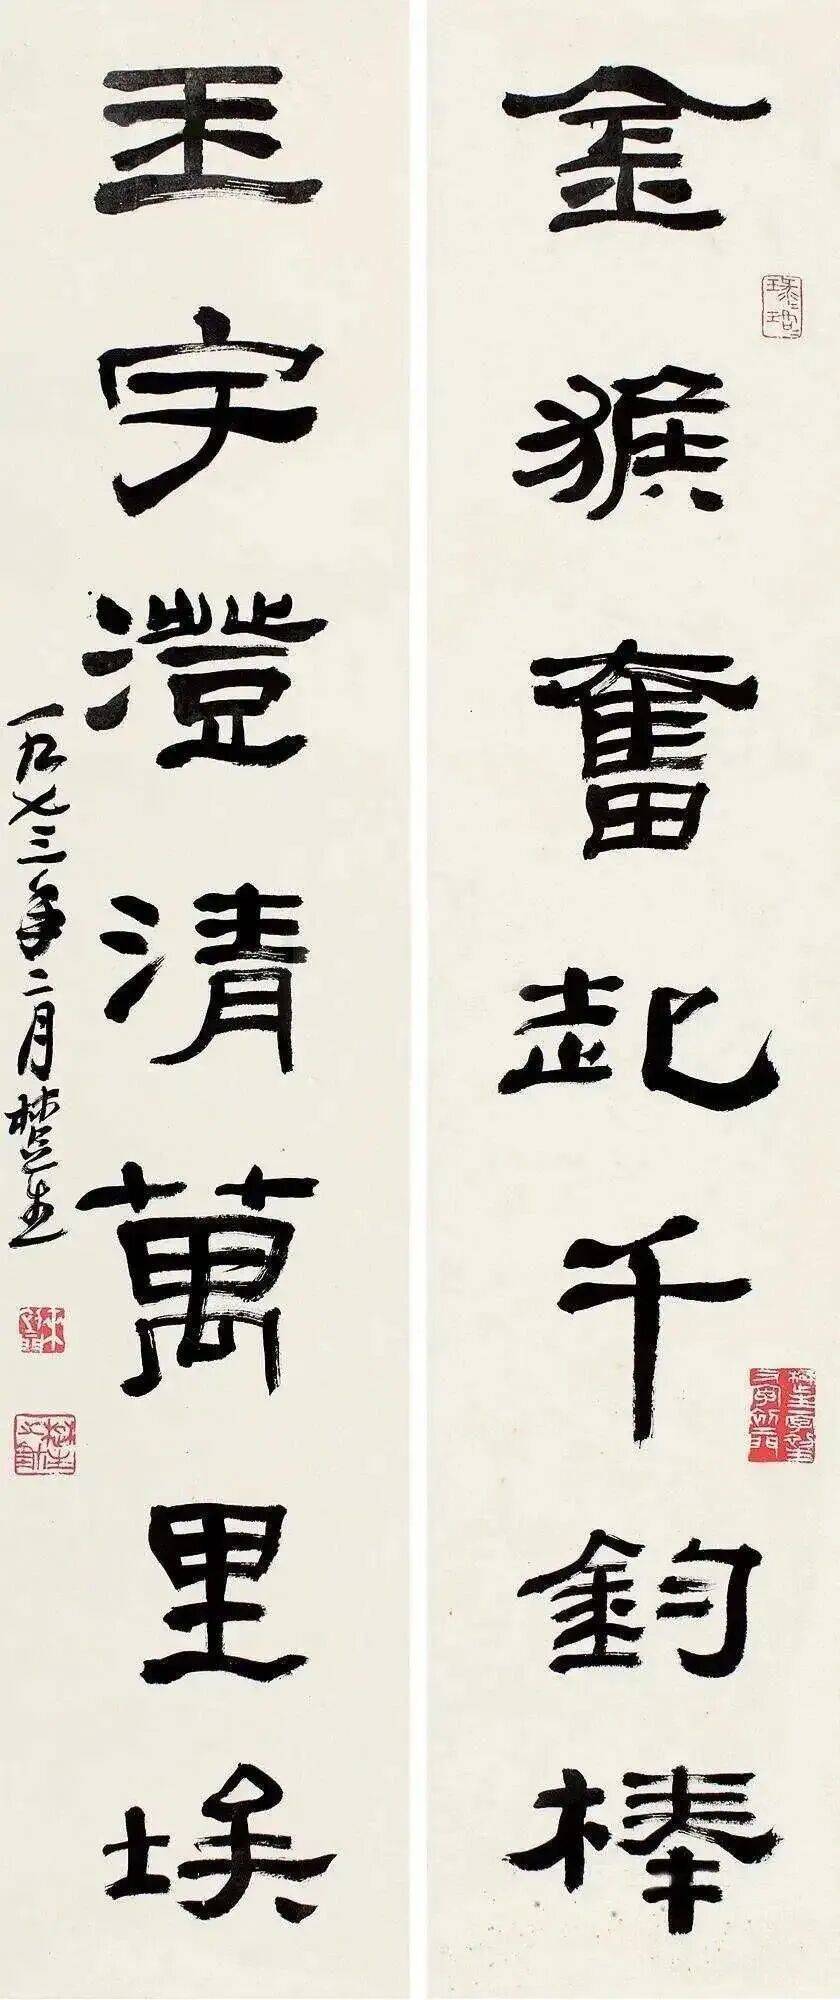 金猴奮起千鈞棒
玉宇澄清萬里埃
一九七三年二月楚生